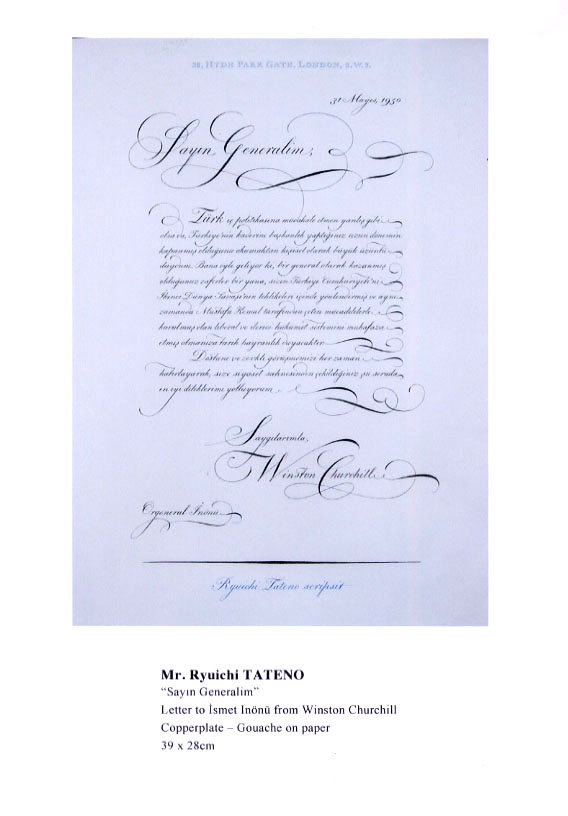 28, HYDE PARK GATE, LONDON, S.W.7.
31 Mayıs, 1950
Sayın Generalim,
Türk iç politikasına müdahale etmem yanlış gibi
olsa da, Türkiye'nin kaderine başkanlık yaptığınız uzun dönemin
kapanmış olduğunu okumaktan kişisel olarak büyük üzüntü
duydum. Bana öyle geliyor ki, bir general olarak kazanmış
olduğunuz zaferler bir yana, sizin Türkiye Cumhuriyeti'ni
İkinci Dünya Savaşı'nın tehlikeleri içinde yönlendirmiş ve aynı
zamanda Mustafa Kemal tarafından çetin mücadelelerle
kurulmuş olan liberal ve ilerici hükümet sistemini muhafaza
etmiş olmanıza tarih hayranlık duyacaktır.
Dostane ve zevkli görüşmemize her zaman
hatırlayarak, size siyaset sahnesinden çekildiğiniz şu sırada
en iyi dileklerimi yolluyorum.
Saygılarımla,
Winston Churchill
Orgeneral İnönü
Ryuichi Tateno scripsit
Mr. Ryuichi TATENO
“Sayın Generalim”
Letter to İsmet Inönü from Winston Churchill
Copperplate – Gouache on paper
39 x 28cm